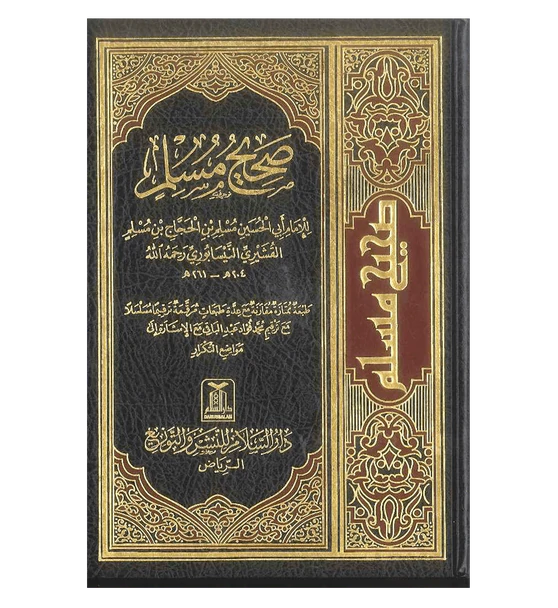 صحيح مسلم
للإمام أبي الحسين مسلم بن الحجاج بن مسلم
القشيري النيسابوري رحمه الله
٢٠٤ - ٢٦١هـ
طبعة ممتازة مقارنة مع عدة طبعات مرقمة ترقيما مسلسلا
مع ترقيم محمد فؤاد عبد الباقي مع الإشارة إلى
مواضع التكرار
دار السلام
DARUSSALAM
دار السلام للنشر والتوزيع
الرياض
صحيح مسلم